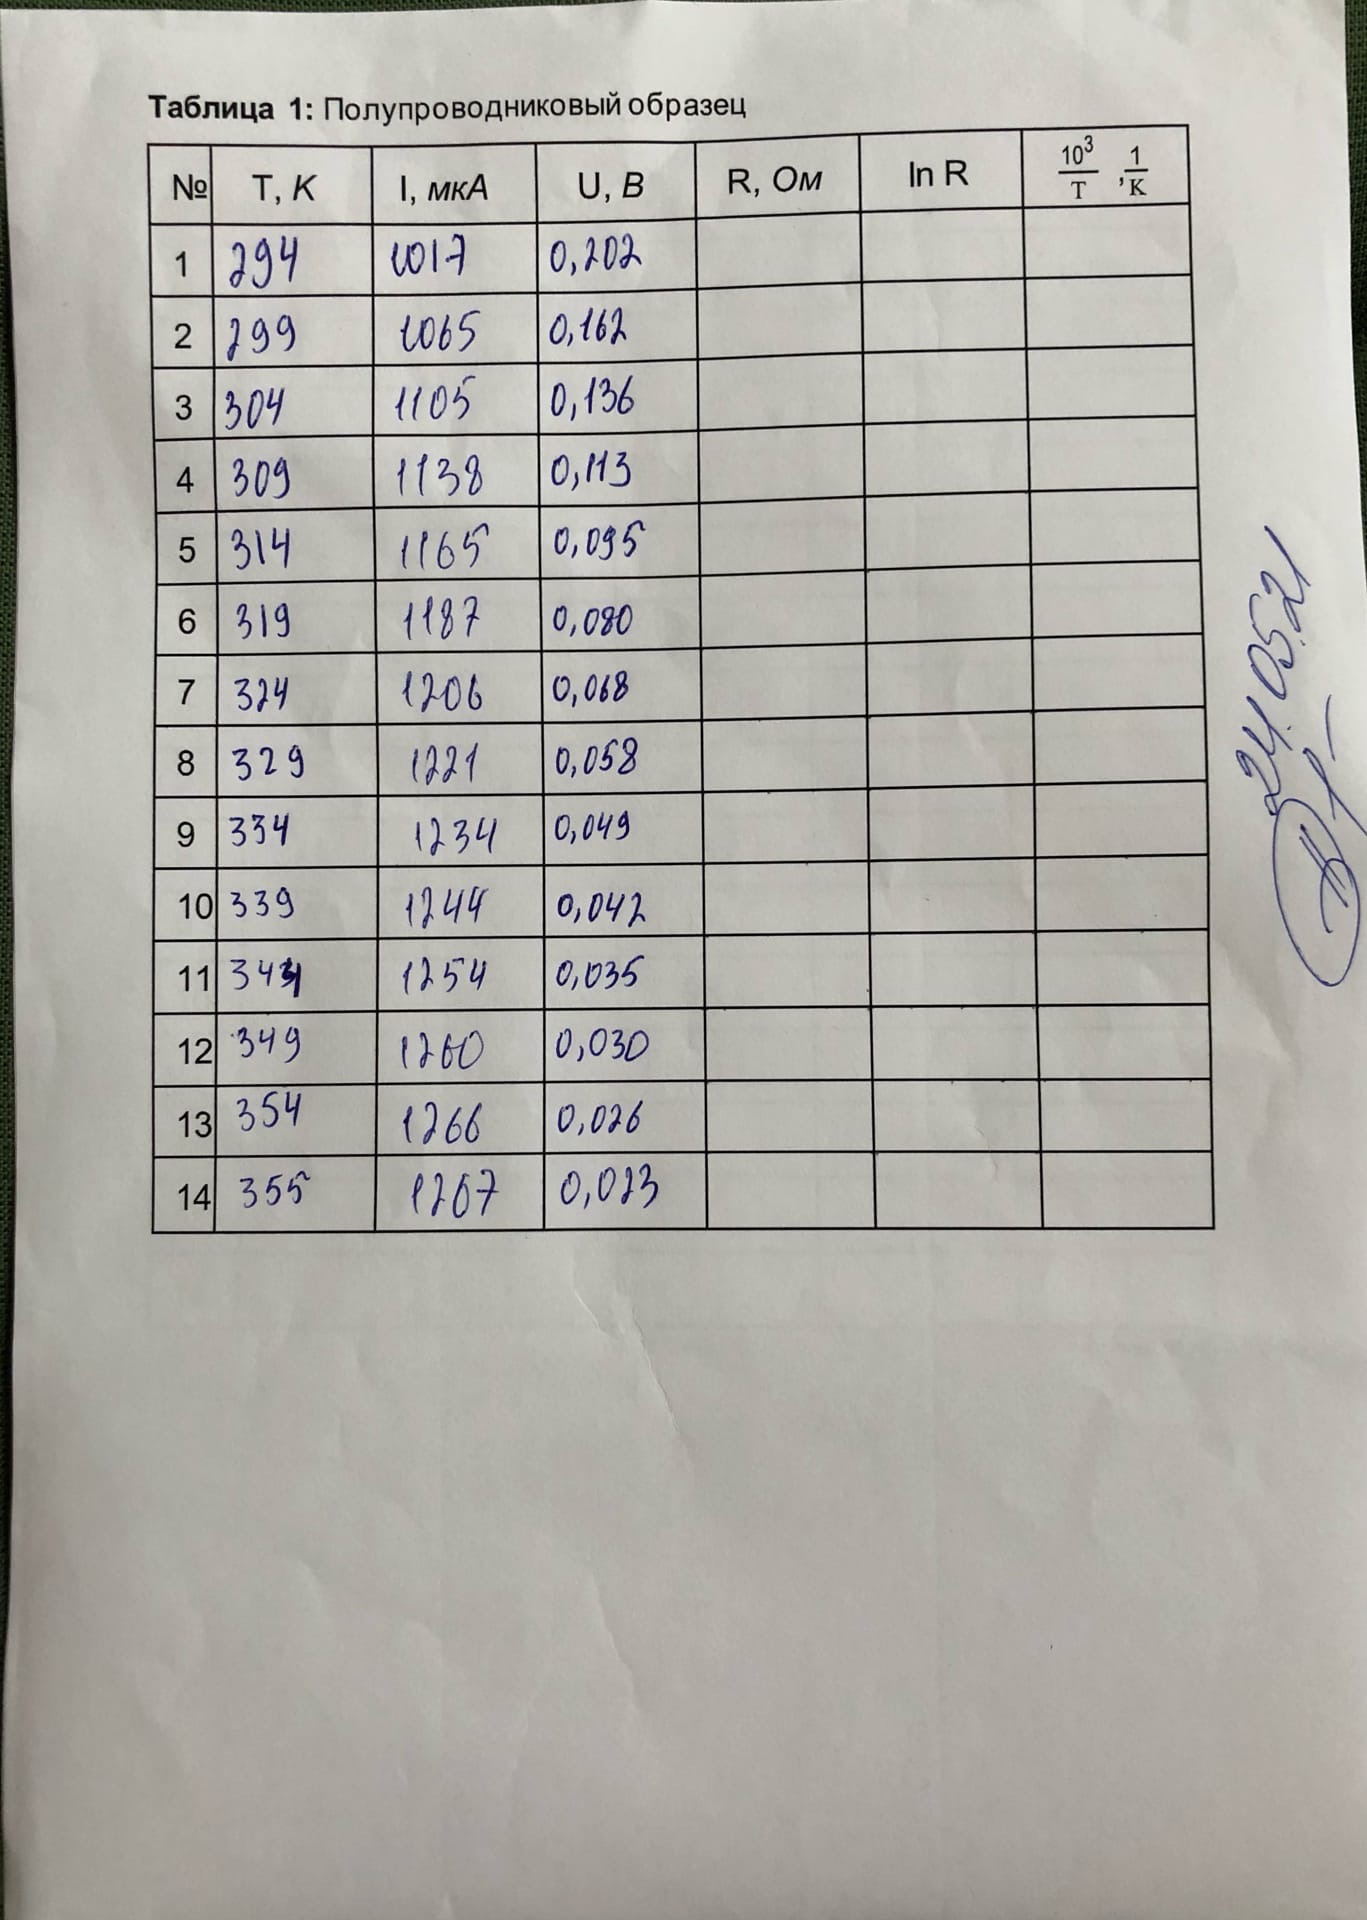 Таблица 1: Полупроводниковый образец
№ T, K I, мкА U, В R, Ом ln R 10³/T , 1/K
1 294 1017 0,202
2 299 1065 0,162
3 304 1105 0,136
4 309 1138 0,113
5 314 1165 0,095
6 319 1187 0,080
7 324 1206 0,068
8 329 1221 0,058
9 334 1234 0,049
10 339 1244 0,042
11 344 1254 0,035
12 349 1260 0,030
13 354 1266 0,026
14 355 1267 0,023
24.05.21